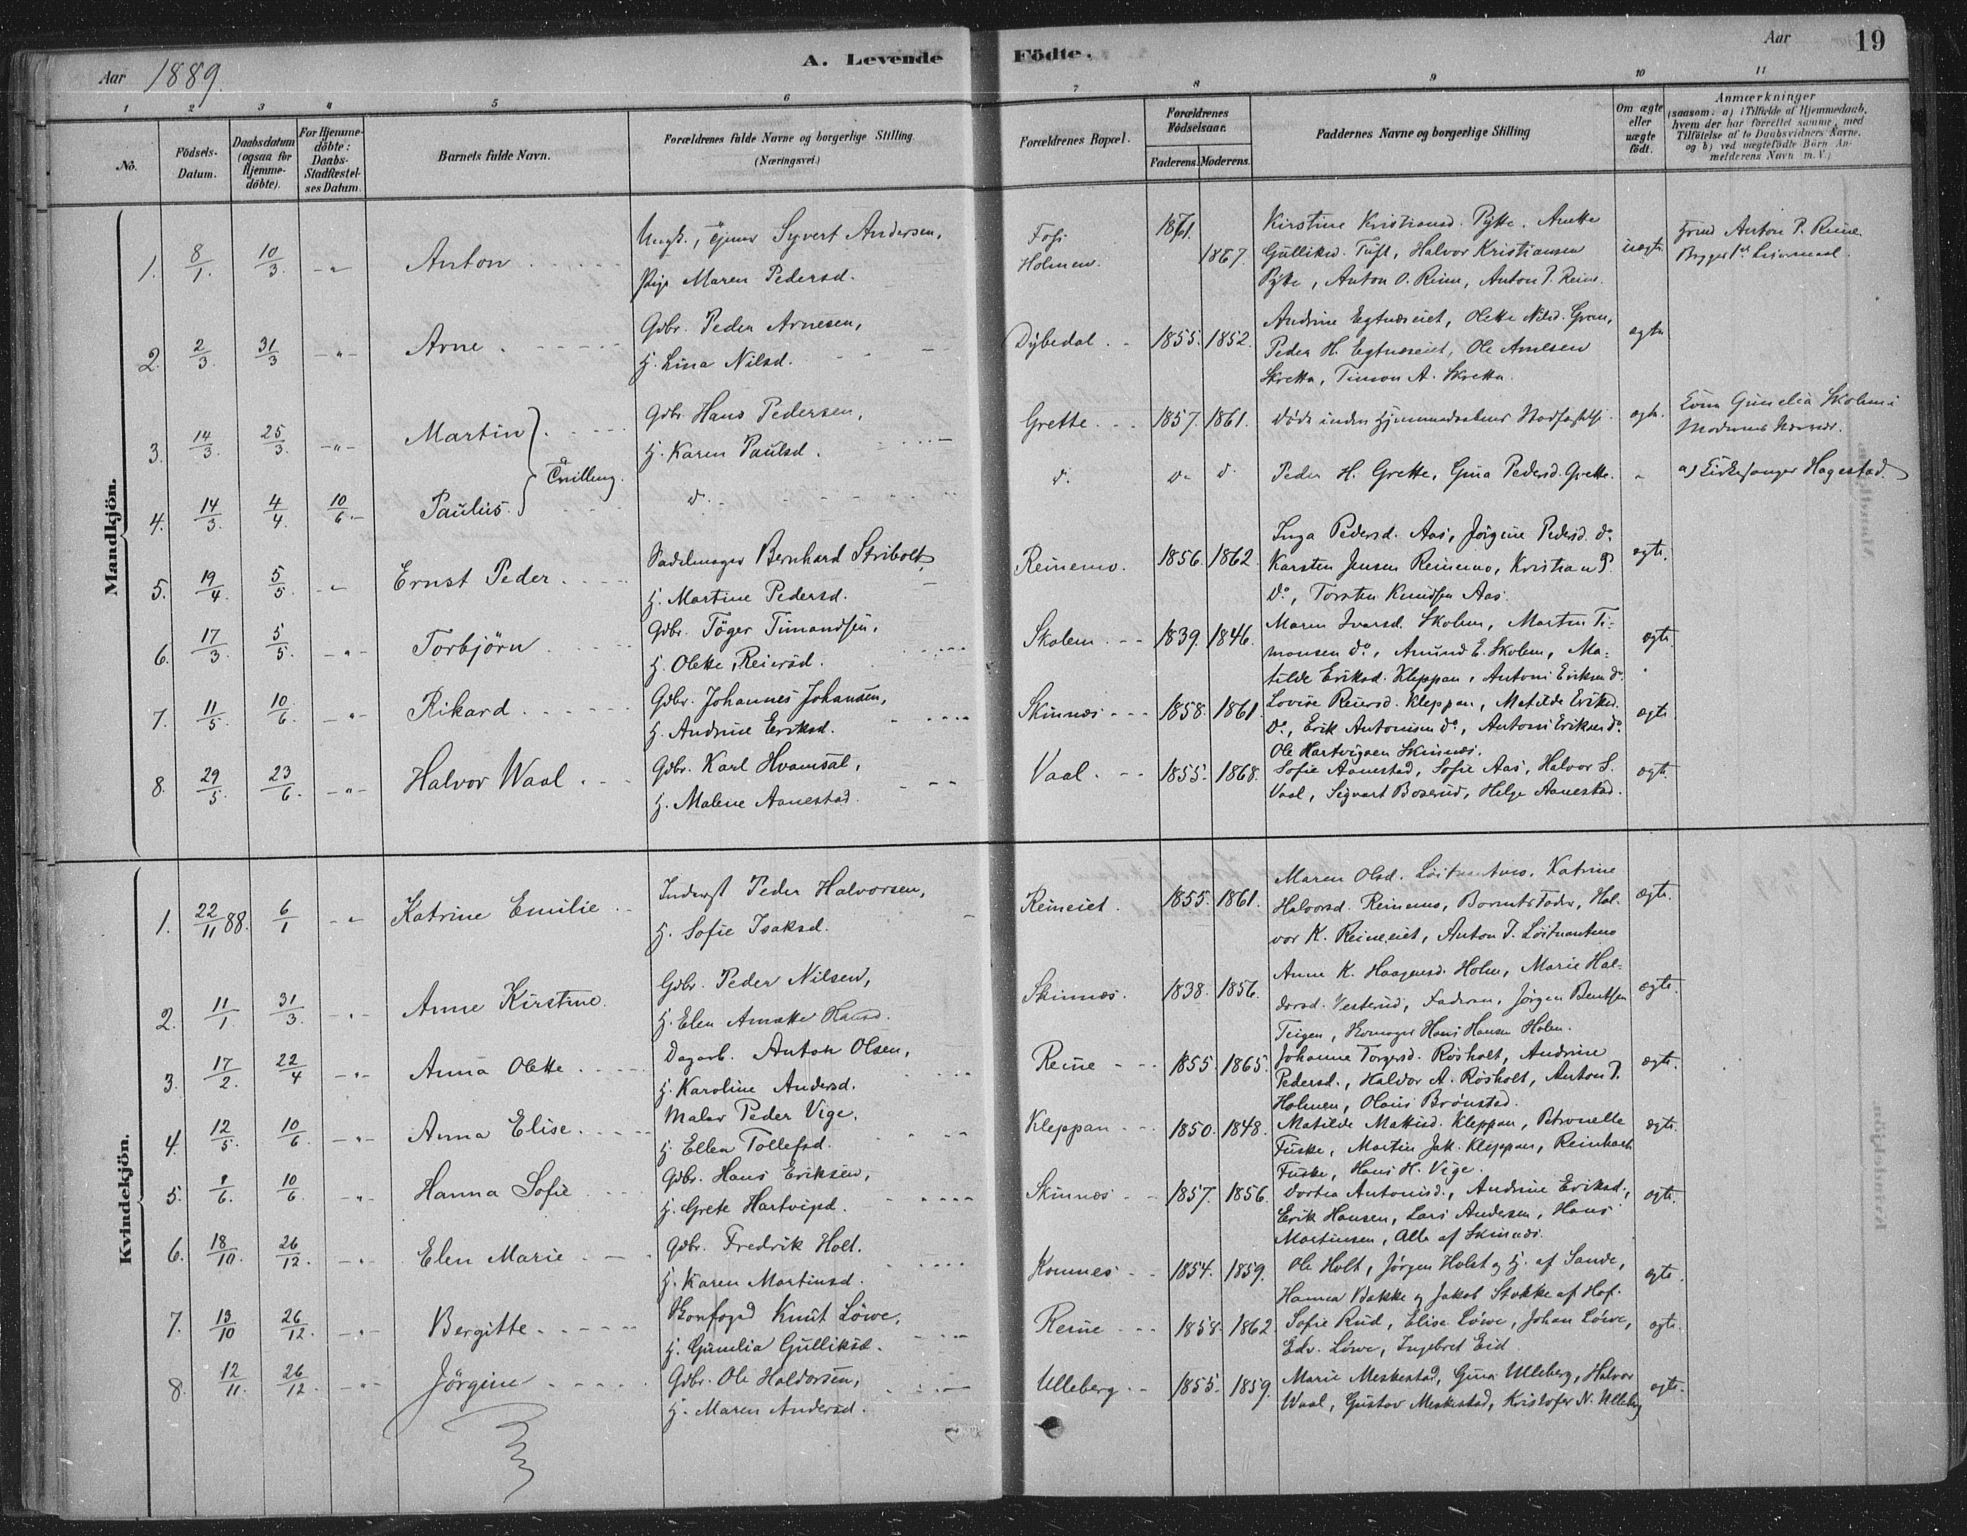 A. Levende Födte.
Aar 1889.
Aar 19
1 2 3 4 5 6 7 8 9 10 11
No.
Födsels-Datum.
Daabsdatum (ogsaa for Hjemme-döbte).
For Hjemme-döbte: Daabs-Stadfæstel-ses Datum.
Barnets fulde Navn.
Forældrenes fulde Navne og borgerlige Stilling. (Næringsvei.)
Forældrenes Bopæl.
Forældrenes Födselsaar.
Faderens. Moderens.
Faddernes Navne og borgerlige Stilling
Om ægte eller uægte födt.
Anmærkninger
(saasom: a) i Tilfælde af Hjemmedaab, hvem der har forrettet samme, med Tilföielse af to Daabsvidners Navne, og b) ved uægtefödte Börn An-melderens Navn m. V.)
Mandkjön.
1. 8/1 10/3 -"- Anton
Ungk., Syvert Andersen,
Pige Maren Pedersd.
Foss Holmen. 1861. 1867.
Kirstine Kristiansd. Pytte. Anette
Gulliksd. Tuft, Halvor Kristiansen
Pytte, Anton O. Reine, Anton P. Reine.
uægte Anton P. Reine.
2. 2/3 31/3 -"- Arne.
Gdbr. Peder Arnesen,
H. Lina Nilsd.
Dybedal. 1855. 1852.
Andrine Egtnæseiet, Olette Nilsd. Gran,
Peder H. Egtnæseiet, Ole Arnesen
Skretta, Timon A. Skretta.
ægte
3. 14/3 25/3 -"- Martin
Gdbr. Hans Pedersen,
H. Karen Paulsd.
Grette. 1857. 1861.
Døde inden Hjemmedaabens Stadfæstelse. ægte.
Gunelia Skolem
Tvilling.
4. 14/3 4/4 10/6. Paulus.
d. d. d. d.
Peder H. Grette, Gina Pedersd. Grette. -
a) Kirkesanger Hagestad.
5. 19/4 5/5 -"- Ernst Peder
Sadelmager Bernhard Stribolt,
H. Martine Pedersd.
Reinemo. 1856. 1862
Inga Pedersd. Aas, Jørgine Pedersd. do.
Karsten Jensen Reinemo, Kristian P.
Do., Torsten Knudsen Aas.
ægte.
6. 17/3. 5/5. -"- Torbjörn
Gdbr. Töger Timandsen,
H. Olette Reiersd.
Skolem 1839. 1846.
Maren Ivarsd. Skolem, Martin Ti-
monsen do., Amund E. Skolem, Ma-
tilde Eriksd. Kleppan, Antoni Eriksen do.
ægte.
7. 11/5 10/6 -"- Rikard
Gdbr. Johannes Johansen,
H. Andrine Eriksd.
Skinnæs 1858. 1861.
Lovise Reiersd. Kleppan, Matilde Eriksd.
Do., Erik Antonisen do., Antoni Eriksen do.
Ole Hartvigsen Skinnæs.
ægte
8. 29/5. 23/6 -"- Halvor Waal
Gdbr. Karl Hvamsal,
H. Malene Aanestad.
Vaal. 1855. 1868.
Sofie Aanestad, Sofie Aas, Halvor S.
Vaal, Sigvart Boserud, Helge Aanestad.
ægte.
Kvindekjön.
1. 22/11 88. 6/1 -"- Katrine Emilie
Inderst Peder Halvorsen,
H. Sofie Isaksd.
Reineiet. 1855. 1861.
Maren Olsd. Løitnantmo. Katrine
Halvorsd. Reinemo, Barnets Fader, Hal-
vor K. Reineeiet, Anton J. Løitnantmo
ægte.
2. 11/1 31/3 -"- Anne Kirstine.
Gdbr. Peder Nilsen,
H. Elen Anette Hansd.
Skinnæs. 1838. 1856.
Anne K. Haagensd. Holm, Marie Hal-
dorsd. Vesterud, Faderen, Jørgen Bentsen
Teigen, Skomager Hans Hansen Holm.
ægte.
3. 17/2. 22/4 -"- Anna Olette
Dagarb. Anton Olsen,
H. Karoline Andersd.
Reine 1855. 1865.
Johanne Torgersd. Røsholt, Andrine
Pedersd., Haldor A. Røsholt, Anton P.
Holmen, Olaus Brønstad.
ægte.
4. 12/5. 10/6 -"- Anna Elise.
Maler Peder Vige.
H. Ellen Tollefsd.
Kleppan 1850. 1848.
Matilde Mattisd. Kleppan, Petronelle
Fuske, Martin Jak. Kleppan, Reinhart
Fuske, Hans H. Vige.
ægte.
5. 8/6. 10/6 -"- Hanna Sofie
Gdbr. Hans Eriksen,
H. Grete Hartvigsd.
Skinnæs 1857. 1856.
Dortea Antonisd., Andrine Eriksd.,
Erik Hansen, Lars Andersen, Hans
Martinsen, Alle af Skinnæs.
ægte.
6. 18/10. 26/12. -"- Elen Marie
Gdbr. Fredrik Holt.
H. Karen Martinsd.
Komnes 1854. 1859.
Ole Holt, Jørgen Holst og H. af Sande,
Hanna Bakke og Jakob Stokke af Hof.
ægte.
7. 13/10 26/12. -"- Bergitte.
Knut Löwe,
H. Gunelia Gulliksd.
Reine 1858. 1862
Sofie Rud, Elise Løwe, Johan Løwe,
Edv. Løwe, Ingebret Eid.
ægte.
8. 12/11. 26/12 -"- Jörgine
Gdbr. Ole Haldorsen,
H. Maren Andersd.
Ulleberg 1855. 1859.
Marie Meskestad, Gina Ulleberg, Halvor
Waal, Gustav Meskestad, Kristofer N. Ulleberg
ægte.